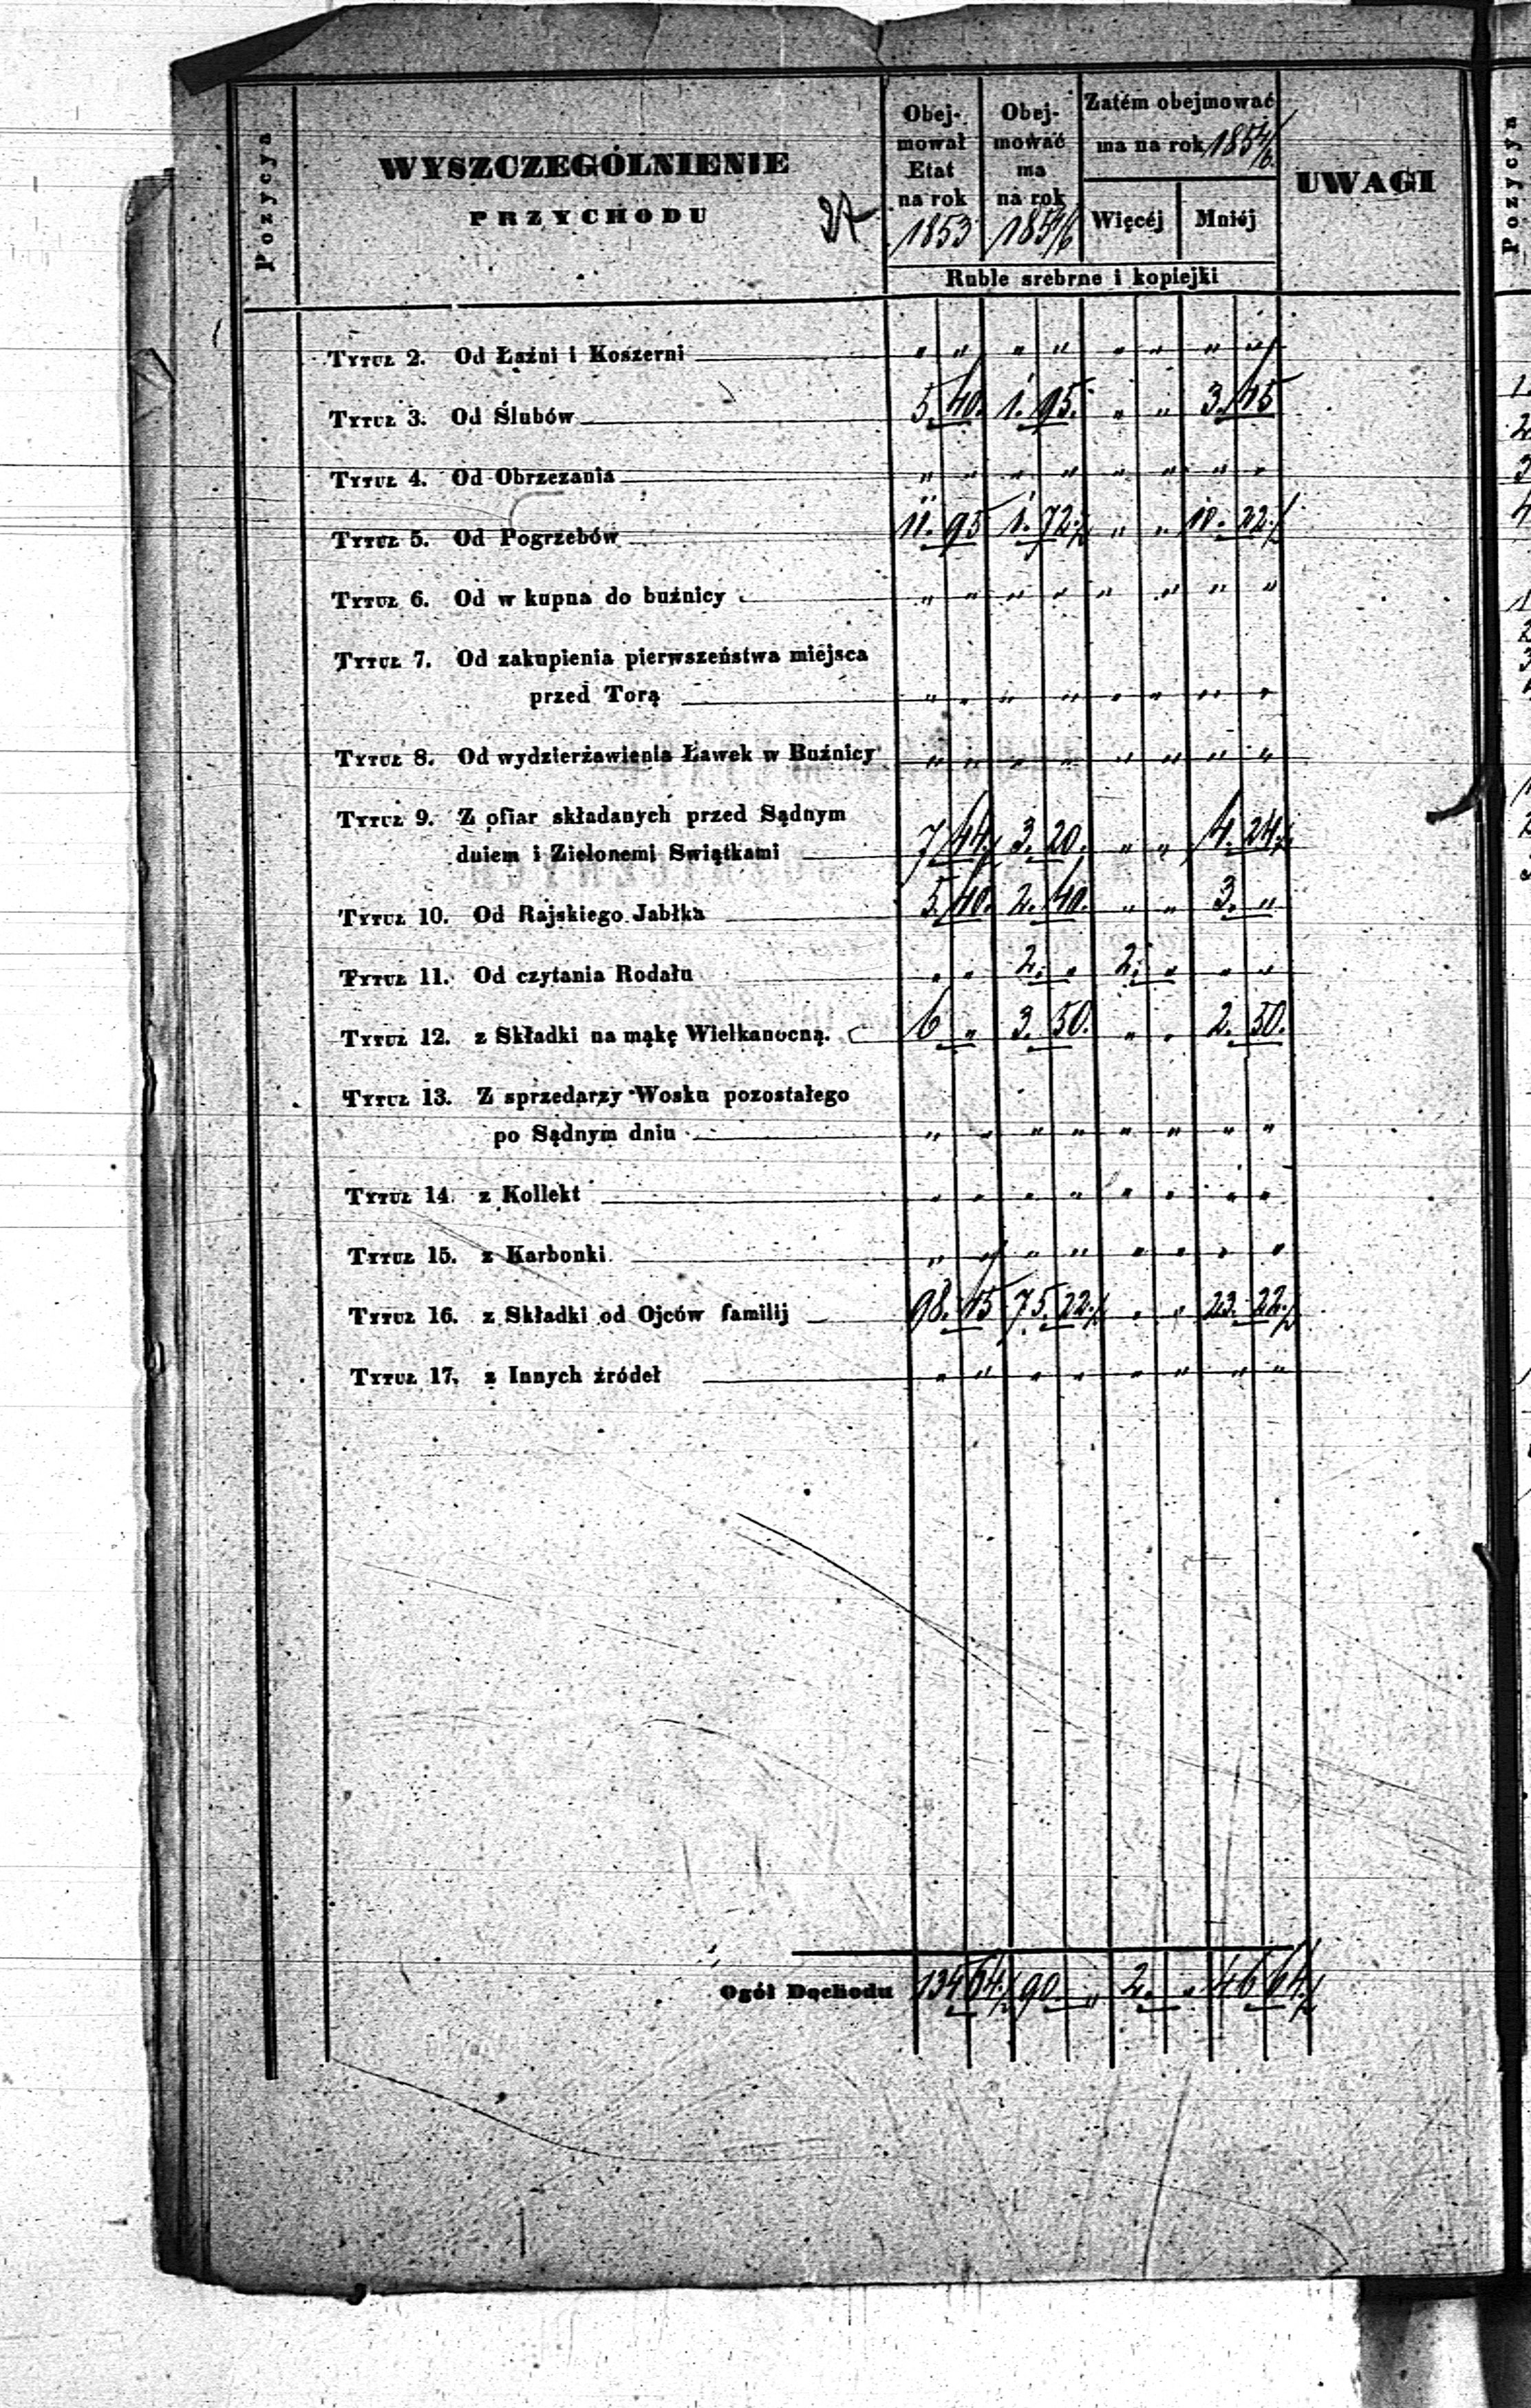 Pozycya
WYSZCZEGÓLNIENIE
PRZYCHODU
Obej-
mował
Etat
na rok
1853
Obej-
mować
ma
na rok
1854/6
Zatém obejmować
ma na rok 1854/6
Więcéj
Mniéj
UWAGI
Ruble srebrne i kopiejki
Tytuł 2. Od Łaźni i Koszerni " " " " " " " "
Tytuł 3. Od Ślubów 5. 40. 1. 95. " " 3. 45
Tytuł 4. Od Obrzezania " " " " " " " "
Tytuł 5. Od Pogrzebów 11. 95 1. 72½ " " 10. 22½
Tytuł 6. Od w kupna do bużnicy " " " " " " " "
Tytuł 7. Od zakupienia pierwszeństwa miejsca
przed Torą " " " " " " " "
Tytuł 8. Od wydzierżawienia Ławek w Bużnicy " " " " " " " "
Tytuł 9. Z ofiar składanych przed Sądnym
dniem i Zielonemi Swiątkami 7 44½ 3. 20. " " 4. 24½
Tytuł 10. Od Rajskiego Jabłka 5. 40. 2. 40. " " 3. "
Tytuł 11. Od czytania Rodału " " 2. " 2. " " "
Tytuł 12. z Składki na mąkę Wielkanocną. 6 " 3. 50. " " 2. 50.
Tytuł 13. Z sprzedarzy Wosku pozostałego
po Sądnym dniu " " " " " " " "
Tytuł 14. z Kollekt " " " " " " " "
Tytuł 15. z Karbonki " " " " " " " "
Tytuł 16. z Składki od Ojców familij 98. 45 75. 22½ " " 23. 22½
Tytuł 17. z Innych źródeł " " " " " " " "
Ogół Dochodu 134 64½ 90 " 2. " 46 64½
Pozycya